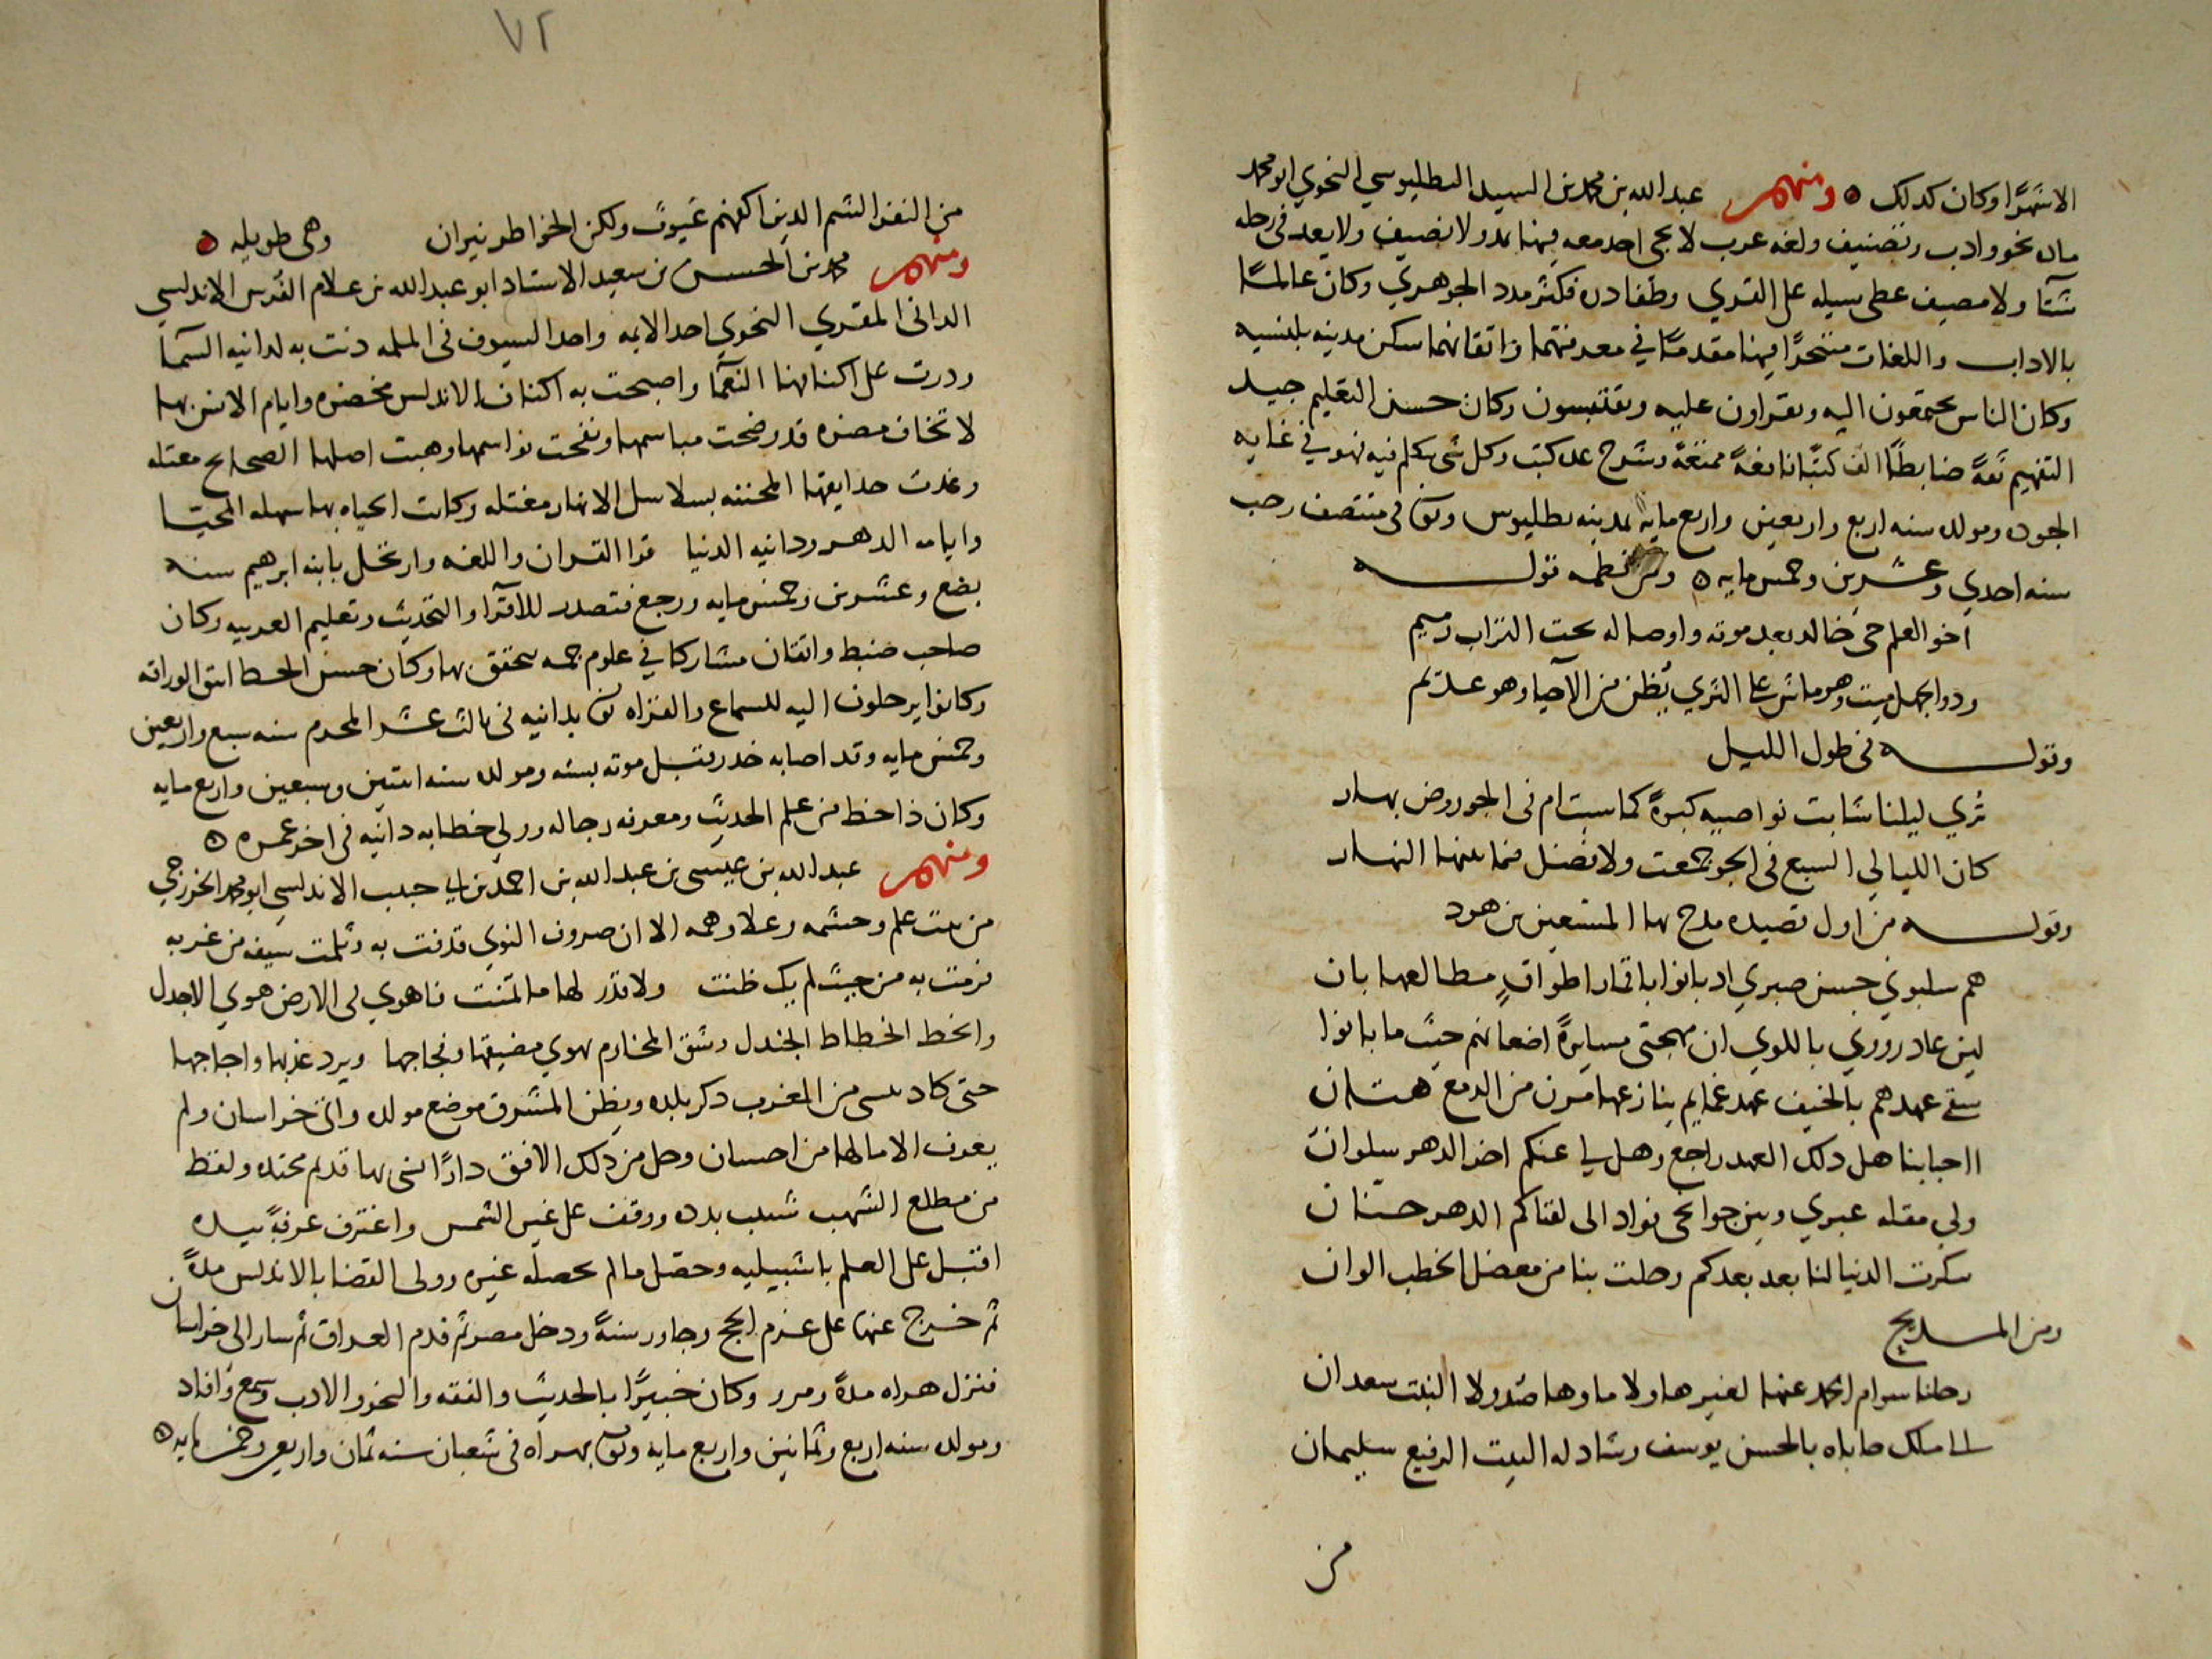 الاشهرا وكان كذلك ۞ ومنهم عبد الله بن محمد بن السيد البطليوسي النحوي ابو محمد
مادد نحو وادب وتصنيف ولغه عرب لا يجي احد معه فيها بمد ولا نصيف ولا يعد في رحله
شتا ولا مصيف على سبيله على القري وكان عالما
بالاداب واللغات متبحرا فيهما مقدما في معرفتهما واتقانهما سكن مدينه بلنسيه
وكان الناس يجتمعون اليه ويقراون عليه ويقتبسون وكان حسن التعليم جيد
التفهيم ثقة ضابطا الف كتبا نافعة ممتعة وشرح عدد كتب وكل شي يتكلم فيه فهو في غايه
الجوده ومولده سنه اربع واربعين واربع مايه بمدينه بطليوس وتوفي في منتصف رجب
سنه احدي وعشرين وخمس مايه ۞ ومن نظمه قوله
اخو العلم حي خالد بعد موته واوصاله تحت التراب رميم
وذو الجهل ميت وهو ماش على الثري يُظن من الاحيا وهو عديم
وقوله في طول الليل
تُري ليلنا شابت نواصيه كبرة كما شبت ام في الجو روض بهار
كان الليالي السبع في الجو جمعت ولا فصل فيما بينها النهار
وقوله من اول قصيده مدح بها المستعين بن هود
هم سلبوني حسن صبري اذ بانوا باقمار اطواق مطالعها بان
لين غادروني باللوي ان مهجتي مسايرة اضعانهم حيث ما بانوا
سقي عهدهم بالخيف عهد غمايم ينازعها مزن من الدمع هتان
ااحبابنا هل ذلك العهد راجع وهل لي عنكم اخر الدهر سلوان
ولي مقله عبري وبين جوانحي فواد الى لقياكم الدهر حنان
تنكرت الدنيا لنا بعد بعدكم وحلت بنا من معضل الخطب الوان
ومن المديح
رحلنا سوام الحمد عنها لغيرها ولا ماوها صدا ولا النبت سعدان
الى ملك حاباه بالحسن يوسف وشاد له البيت الرفيع سليمان
من
٧٢
من النفر الشم الذين اكفهم غيوث ولكن الخواطر نيران وهي طويله ۞
ومنهم محمد بن الحسن بن سعيد الاستاذ ابو عبد الله بن غلام الفرس الاندلسي
الداني المقري النحوي احد الايمه واحد السيوف في الملمه دنت به لدانيه السما
ودرت على اكنافها النعما واصبحت به اكناف الاندلس مخضره وايام الانس بها
لا تخاف مضره قد وضحت مباسمها ونفحت نواسمها وهبت اصلها الصحايح معتله
وغدت حدايقها بسلاسل الانهار مغتله وكانت الحياه بها سهله المحيا
وايامه الدهر ودانيه الدنيا قرا القران واللغه وارتحل بابنه ابرهيم سنه
بضع وعشرين وخمس مايه ورجع فتصدر للاقرا والتحديث وتعليم العربيه وكان
صاحب ضبط واتقان مشاركا في علوم جمه يتحقق بها وكان حسن الخط انيق الوراقه
وكانوا يرحلون اليه للسماع والقراه توفي بدانيه في ثالث عشر المحرم سنه سبع واربعين
وخمس مايه وقد اصابه خدر قبل موته بسنه ومولده سنه اثنتين وسبعين واربع مايه
وكان ذا حظ من علم الحديث ومعرفه رجاله وولي خطابه دانيه في اخر عمره ۞
ومنهم عبد الله بن عيسى بن عبد الله بن احمد بن ابي حبيب الاندلسي ابو محمد الخزرجي
من بيت علم وحشمه وعلا وهمه الا ان صروف النوي قذفت به وثلمت سيفه من غربه
فرمت به من حيث لم يك ظنت ولا قدر لها ما تمنت فاهوي الى الارض هوي الاجدل
وانحط انحطاط الجندل وشق المخارم يهوي مضيقها وفجاجها ويرد عذبها واجاجها
حتى كاد ينسى من المغرب ذكر بلده ويظن المشرق موضع مولده واتى خراسان ولم
يعرف الا مالها من احسان وحل من ذلك الافق دارا نسي بها قديم محتده ولقط
من مطلع الشهب ووقف على عين الشمس واغترف غرفة بيده
اقبل على العلم باشبيليه وحصل ما لم يحصله غيره وولى القضا بالاندلس مدة
ثم خرج عنها على عزم الحج وجاور سنة ودخل مصر ثم قدم العراق ثم سار الى خراسان
فنزل هراه مدة ومرو وكان خبيرا بالحديث والفقه والنحو والادب وسمع وافاد
ومولده سنه اربع وثمانين واربع مايه وتوفي بهراه في شعبان سنه ثمان واربعين وخمس مايه ۞